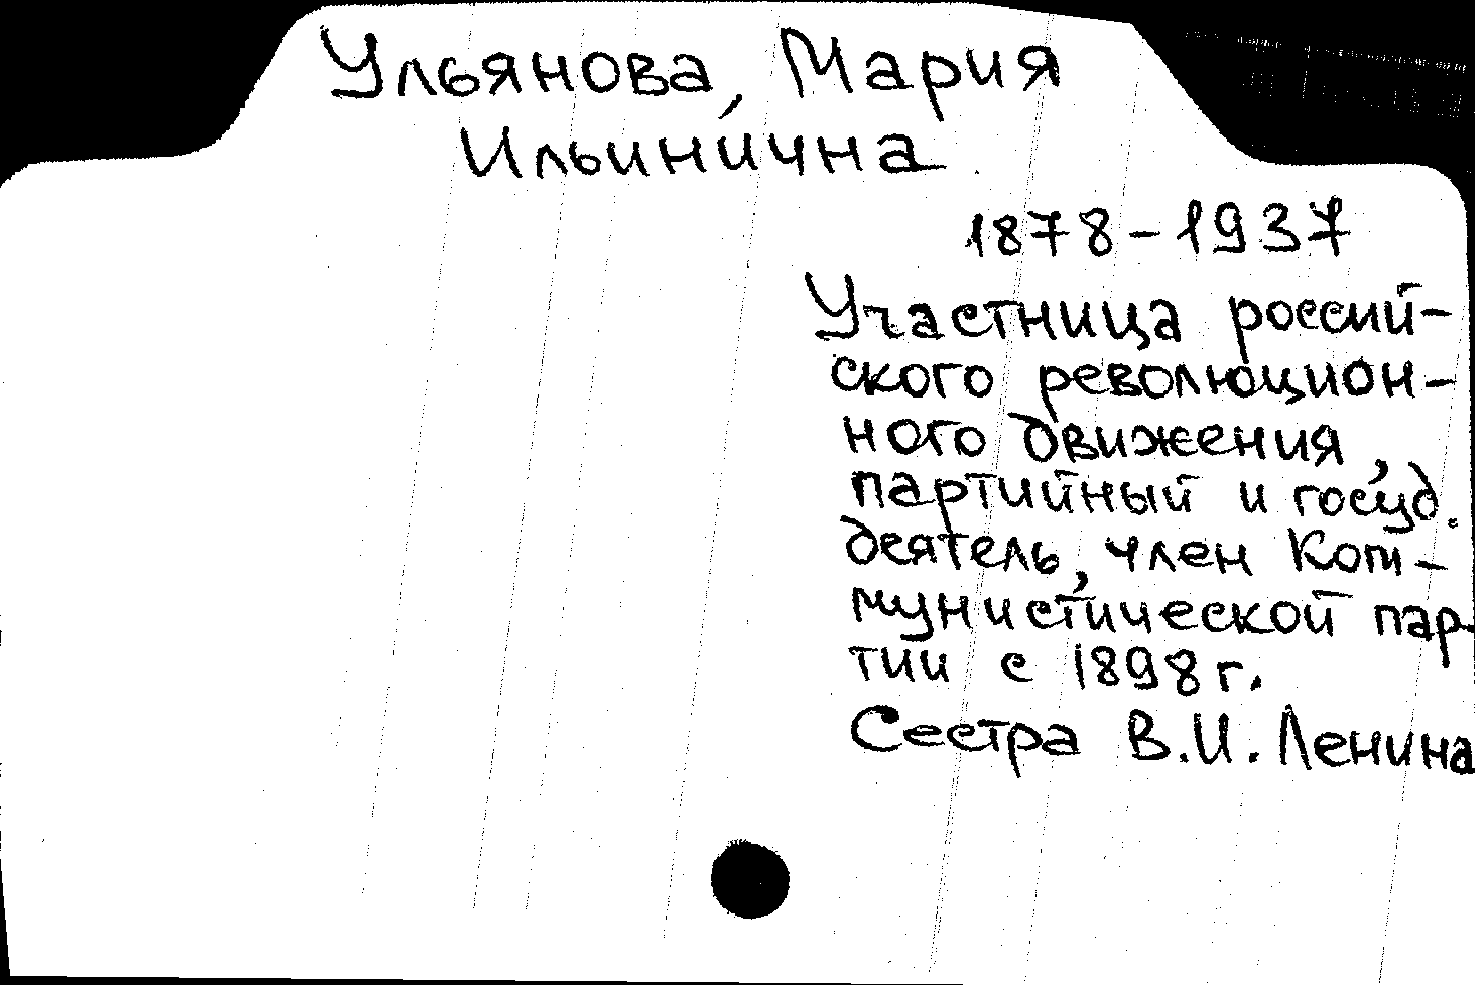 Ульянова, Мария
Ильинична
1878-1937
Участница россий-
ского революцион-
ного движения,
партийный и госуд.
деятель, член Ком-
мунистической пар-
тии с 1898 г.
Сестра В.И. Ленина